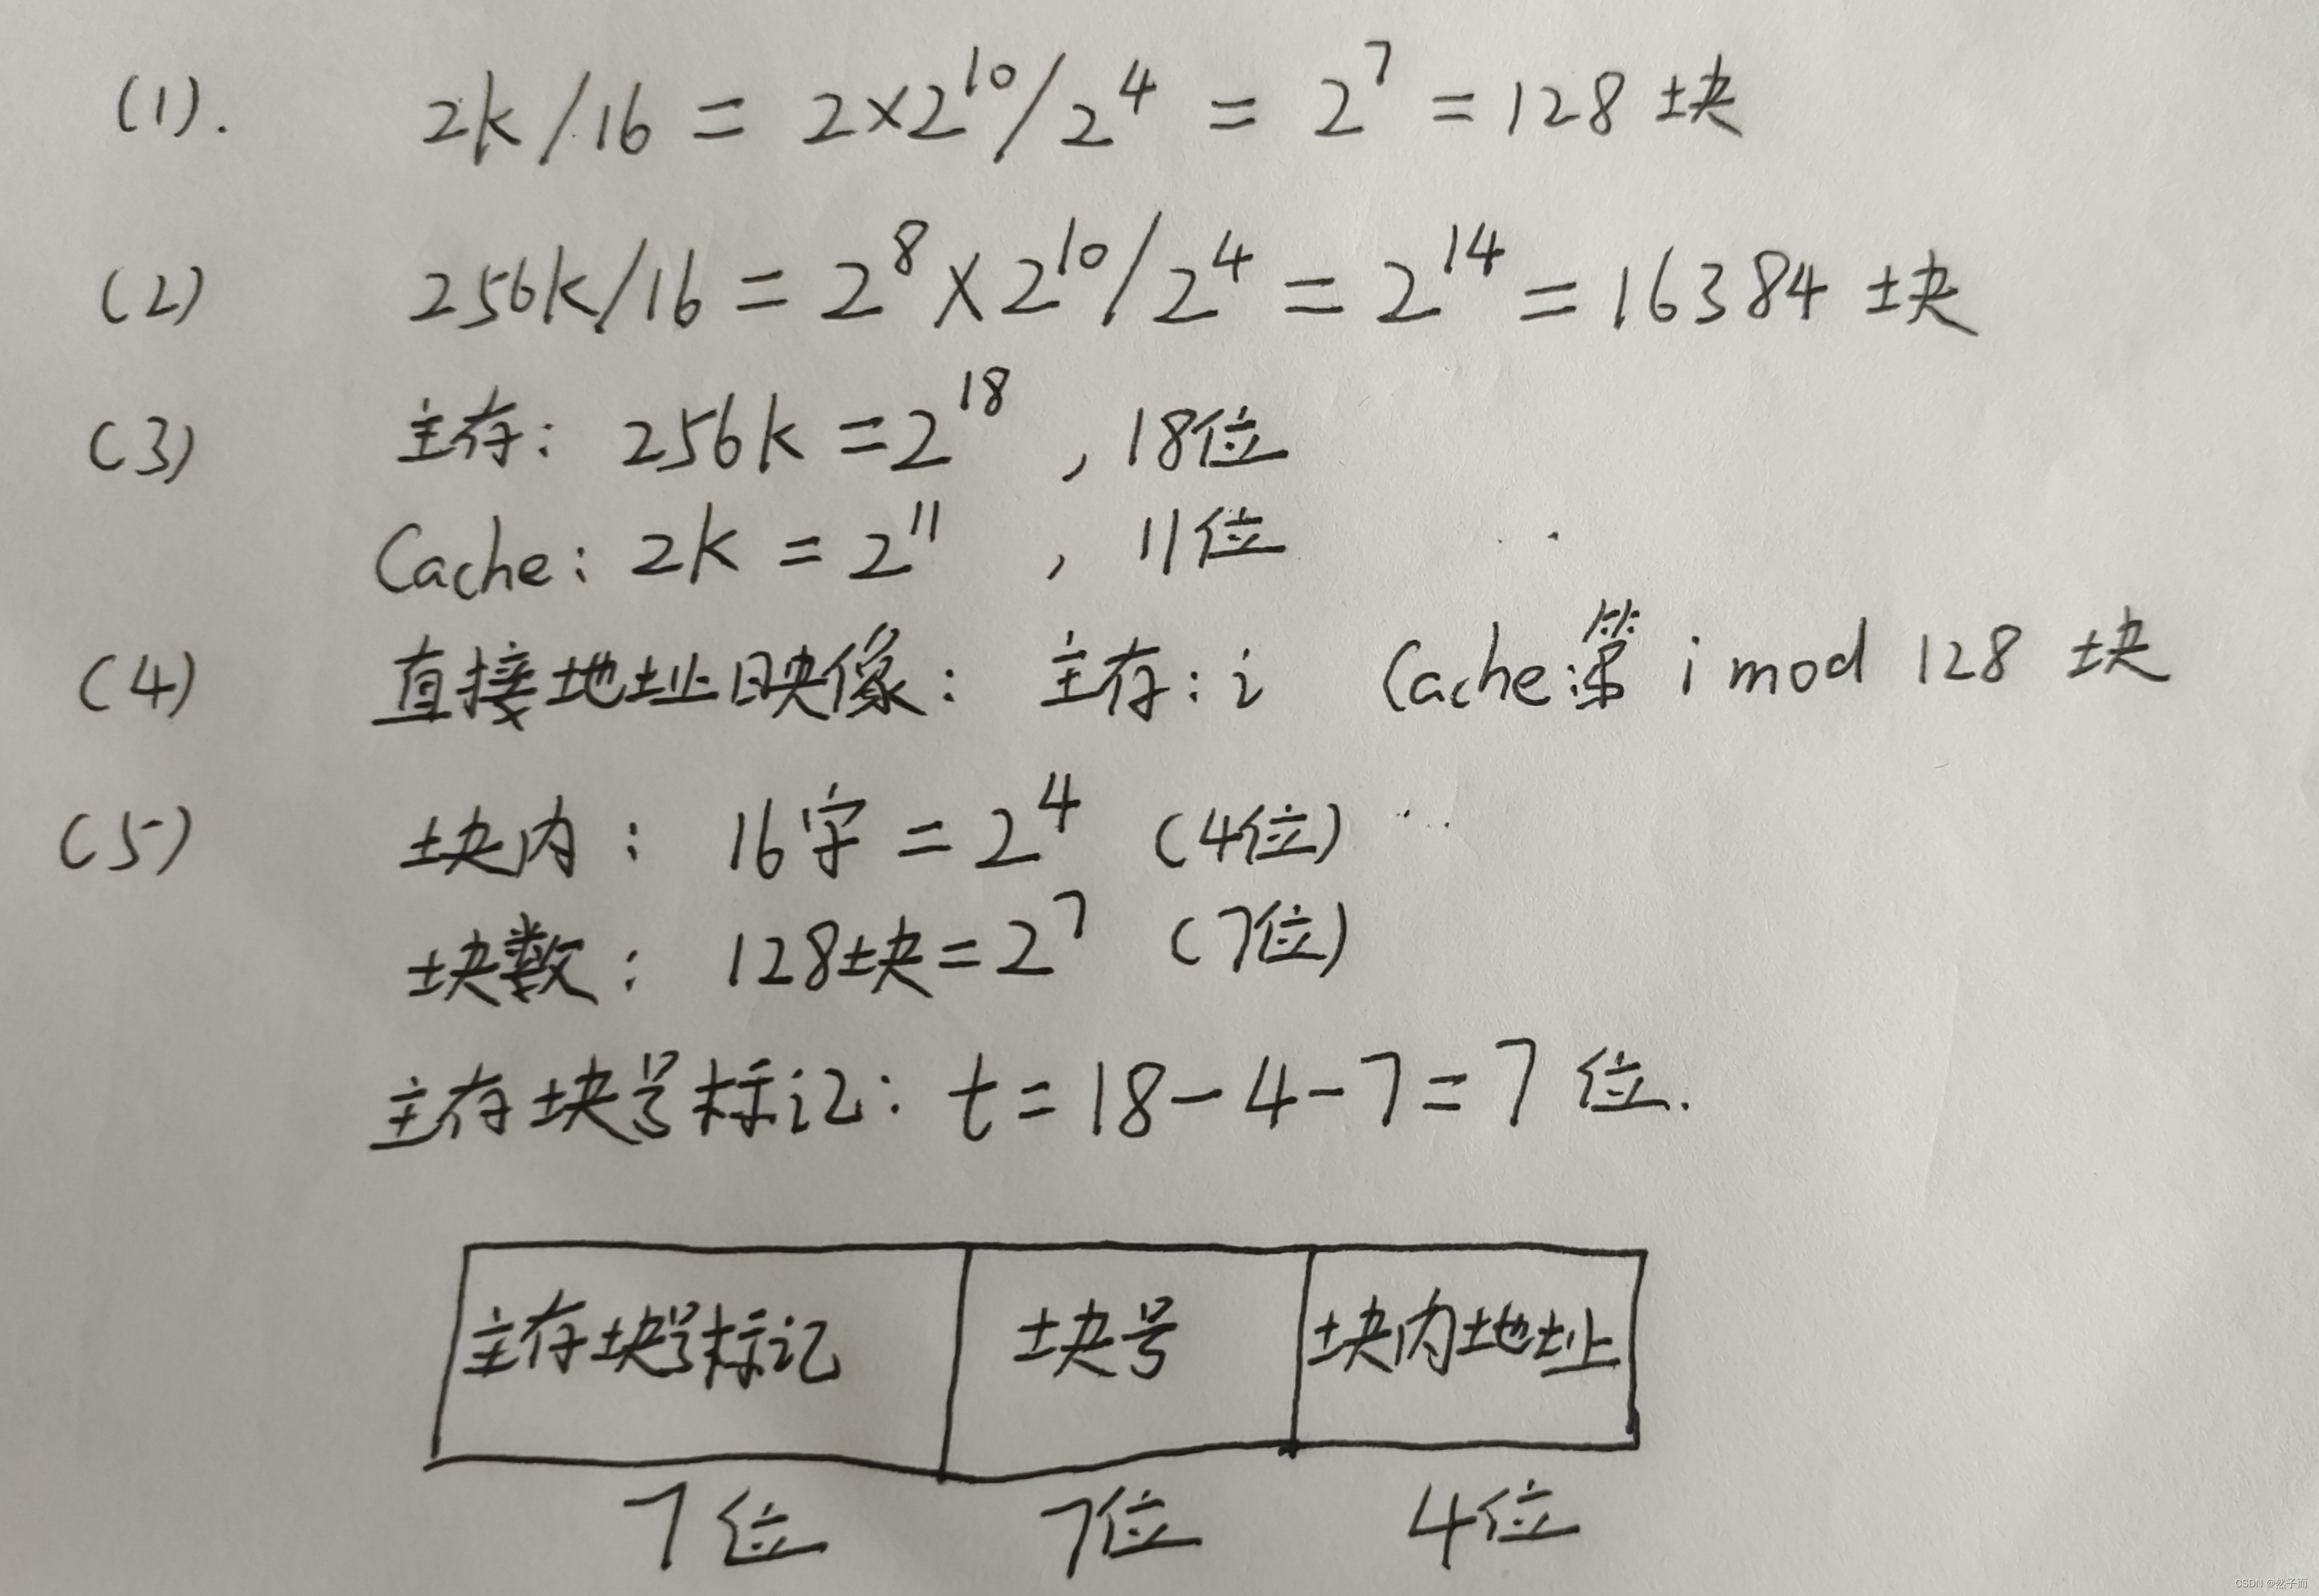 (1). 2k/16 = 2×2^10/2^4 = 2^7 = 128 块
(2) 256k/16 = 2^8×2^10/2^4 = 2^14 = 16384 块
(3) 主存: 256k = 2^18 , 18位
Cache: 2k = 2^11 , 11位
(4) 直接地址映像: 主存: i Cache: 第 i mod 128 块
(5) 块内: 16字 = 2^4 (4位)
块数: 128块 = 2^7 (7位)
主存块号标记: t = 18 - 4 - 7 = 7 位.
主存块号标记 块号 块内地址
7位 7位 4位
CSDN @然子而